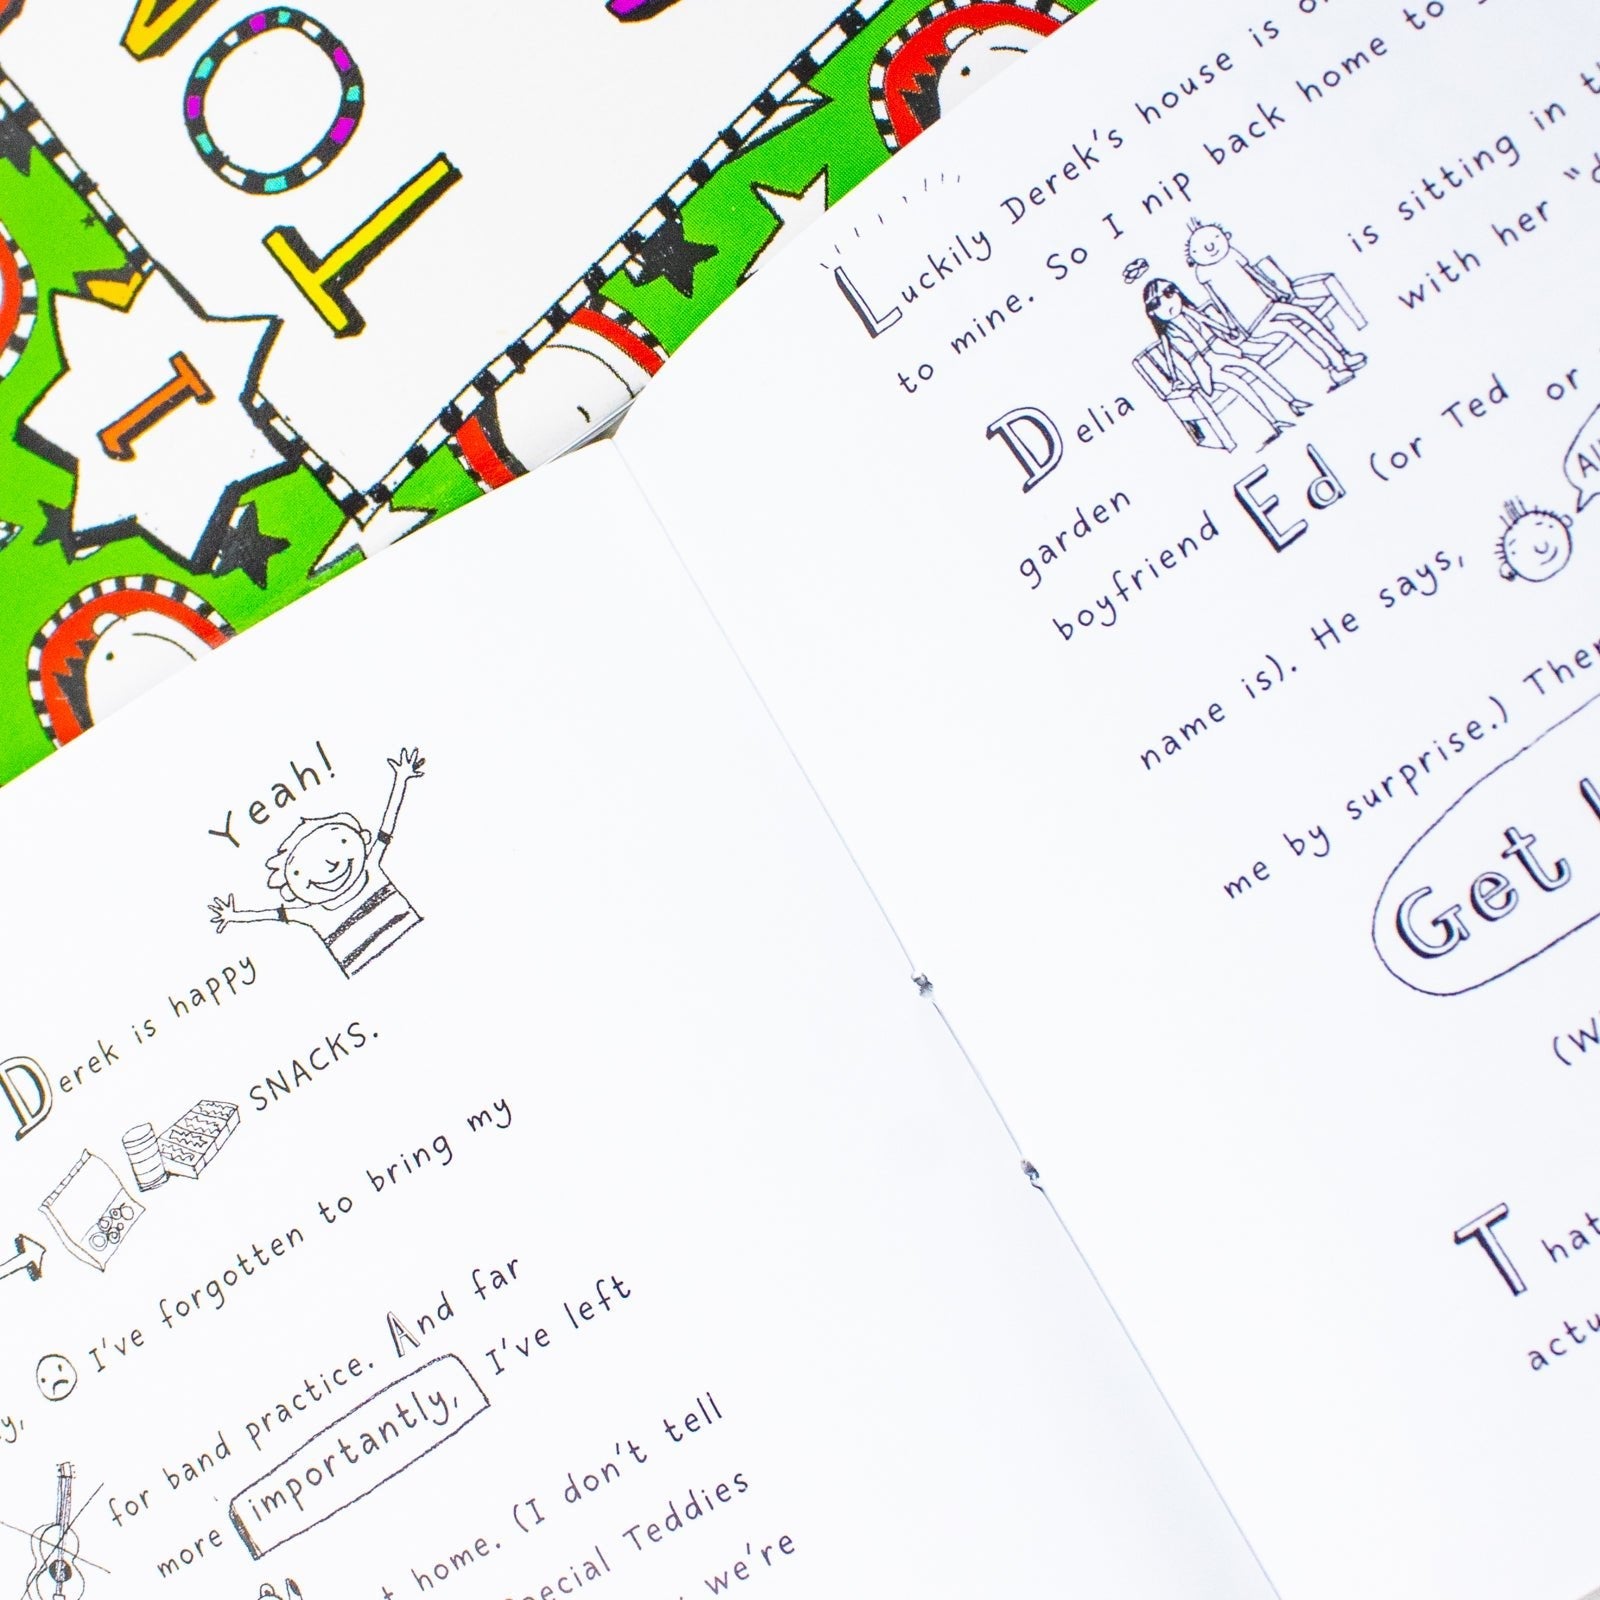 TO
I
Yeah!
Derek is happy
SNACKS.
I've forgotten to bring my
for band practice. And far
more importantly, I've left
home. (I don't tell
Special Teddies
we're
Luckily Derek's house is
to mine. So I nip back home to
Delia is sitting in
garden with her
boyfriend Ed (or Ted or
name is). He says,
me by surprise.)
Get
That